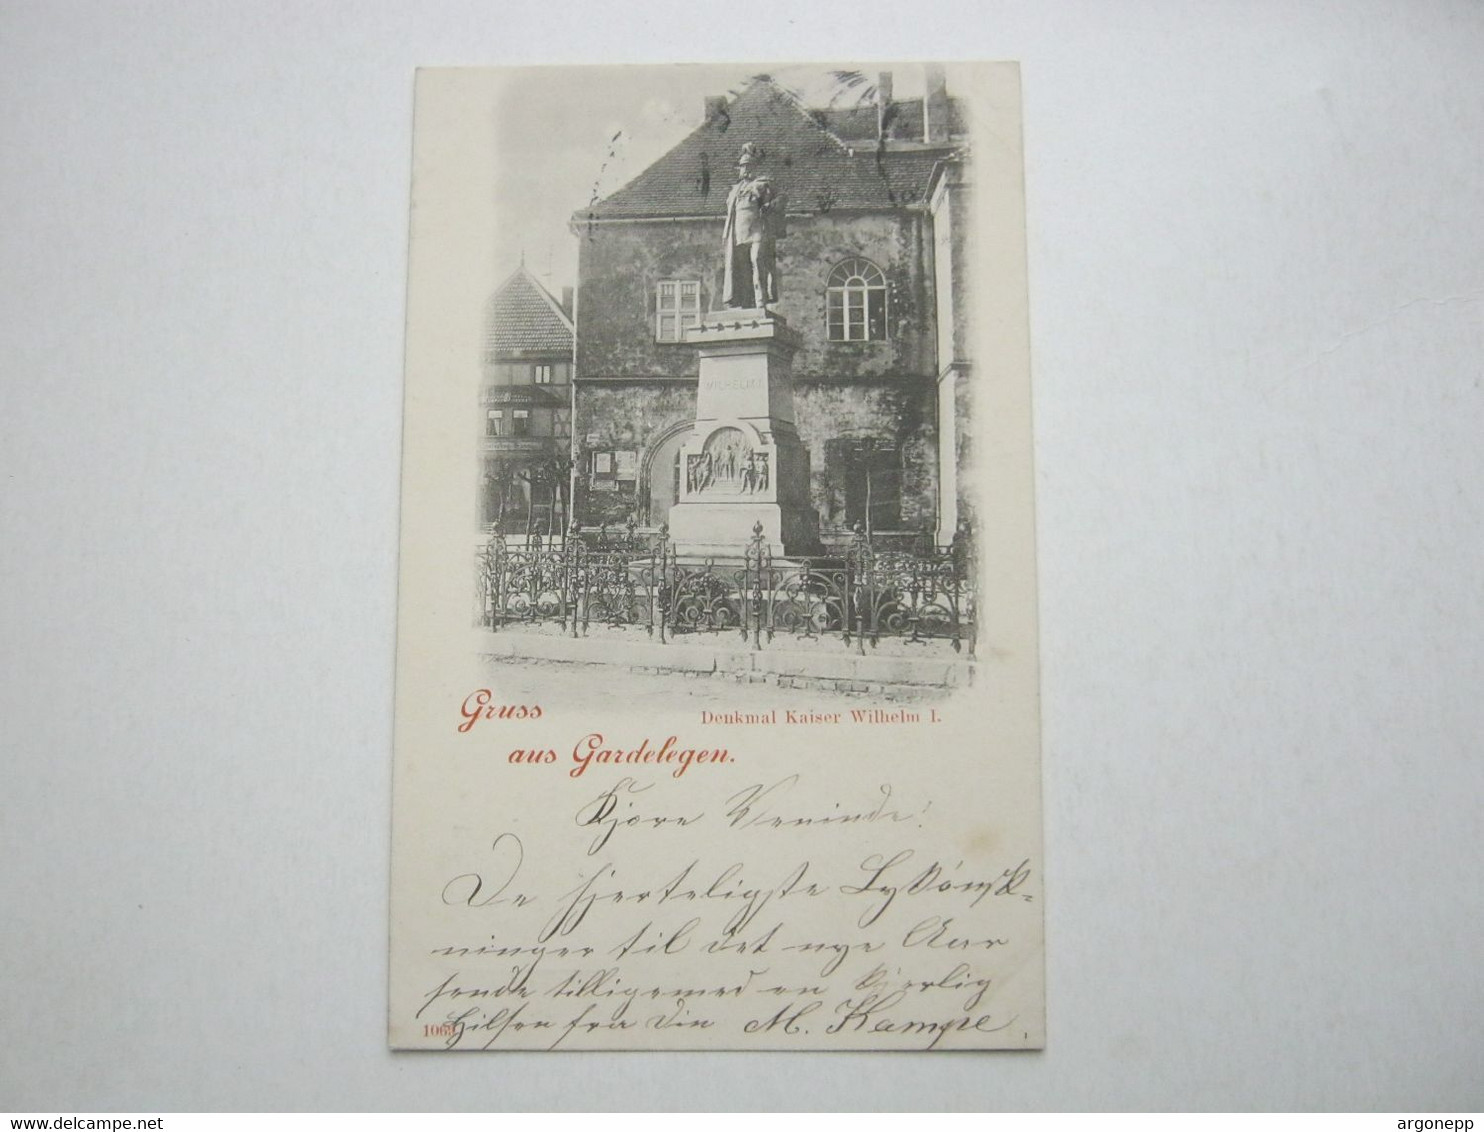 WILHELM
Gruss
aus Gardelegen.
Denkmal Kaiser Wilhelm I.
Kjære Veninde!
De hjerteligste Lykønsk-
ninger til det nye Aar
sende tilligemed en kjærlig
Hilsen fra Din M. Kampe.
1063
delcampe.net
argonepp